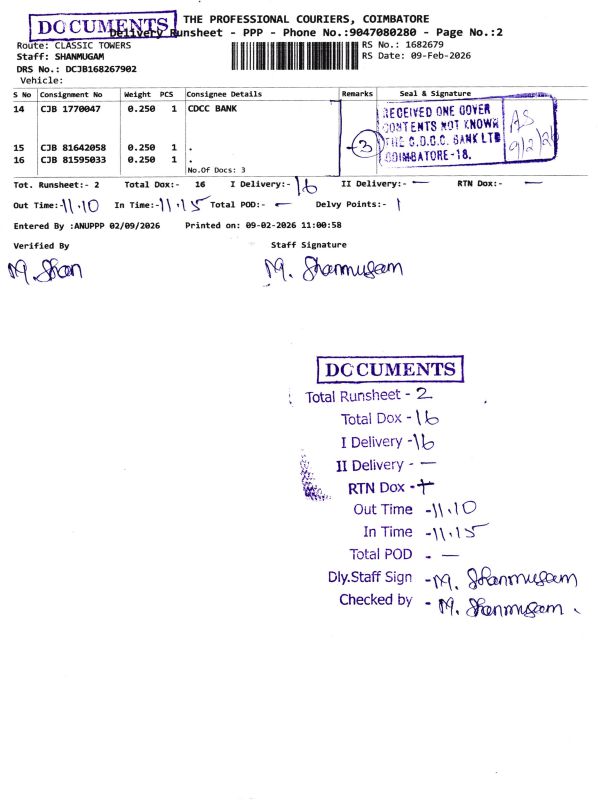 DOCUMENTS
THE PROFESSIONAL COURIERS, COIMBATORE
Delivery Runsheet - PPP - Phone No.:9047080280 - Page No.:2
Route: CLASSIC TOWERS
RS No.: 1682679
Staff: SHANMUGAM
RS Date: 09-Feb-2026
DRS No.: DCJB168267902
Vehicle:
S No Consignment No Weight PCS Consignee Details Remarks Seal & Signature
14 CJB 1770047 0.250 1 CDCC BANK
15 CJB 81642058 0.250 1 .
16 CJB 81595033 0.250 1 .
No.Of Docs: 3
3
RECEIVED ONE COVER
CONTENTS NOT KNOWN
THE C.D.C.C. BANK LTD
COIMBATORE-18.
9/2/26
Tot. Runsheet:- 2 Total Dox:- 16 I Delivery:- 16 II Delivery:- — RTN Dox:- —
Out Time:- 11.10 In Time:- 11.15 Total POD:- — Delvy Points:- 1
Entered By :ANUPPP 02/09/2026 Printed on: 09-02-2026 11:00:58
Verified By Staff Signature
M. Shan M. Shanmugam
DOCUMENTS
Total Runsheet - 2
Total Dox - 16
I Delivery - 16
II Delivery - —
RTN Dox -
Out Time - 11.10
In Time - 11.15
Total POD - —
Dly.Staff Sign - M. Shanmugam
Checked by - M. Shanmugam.